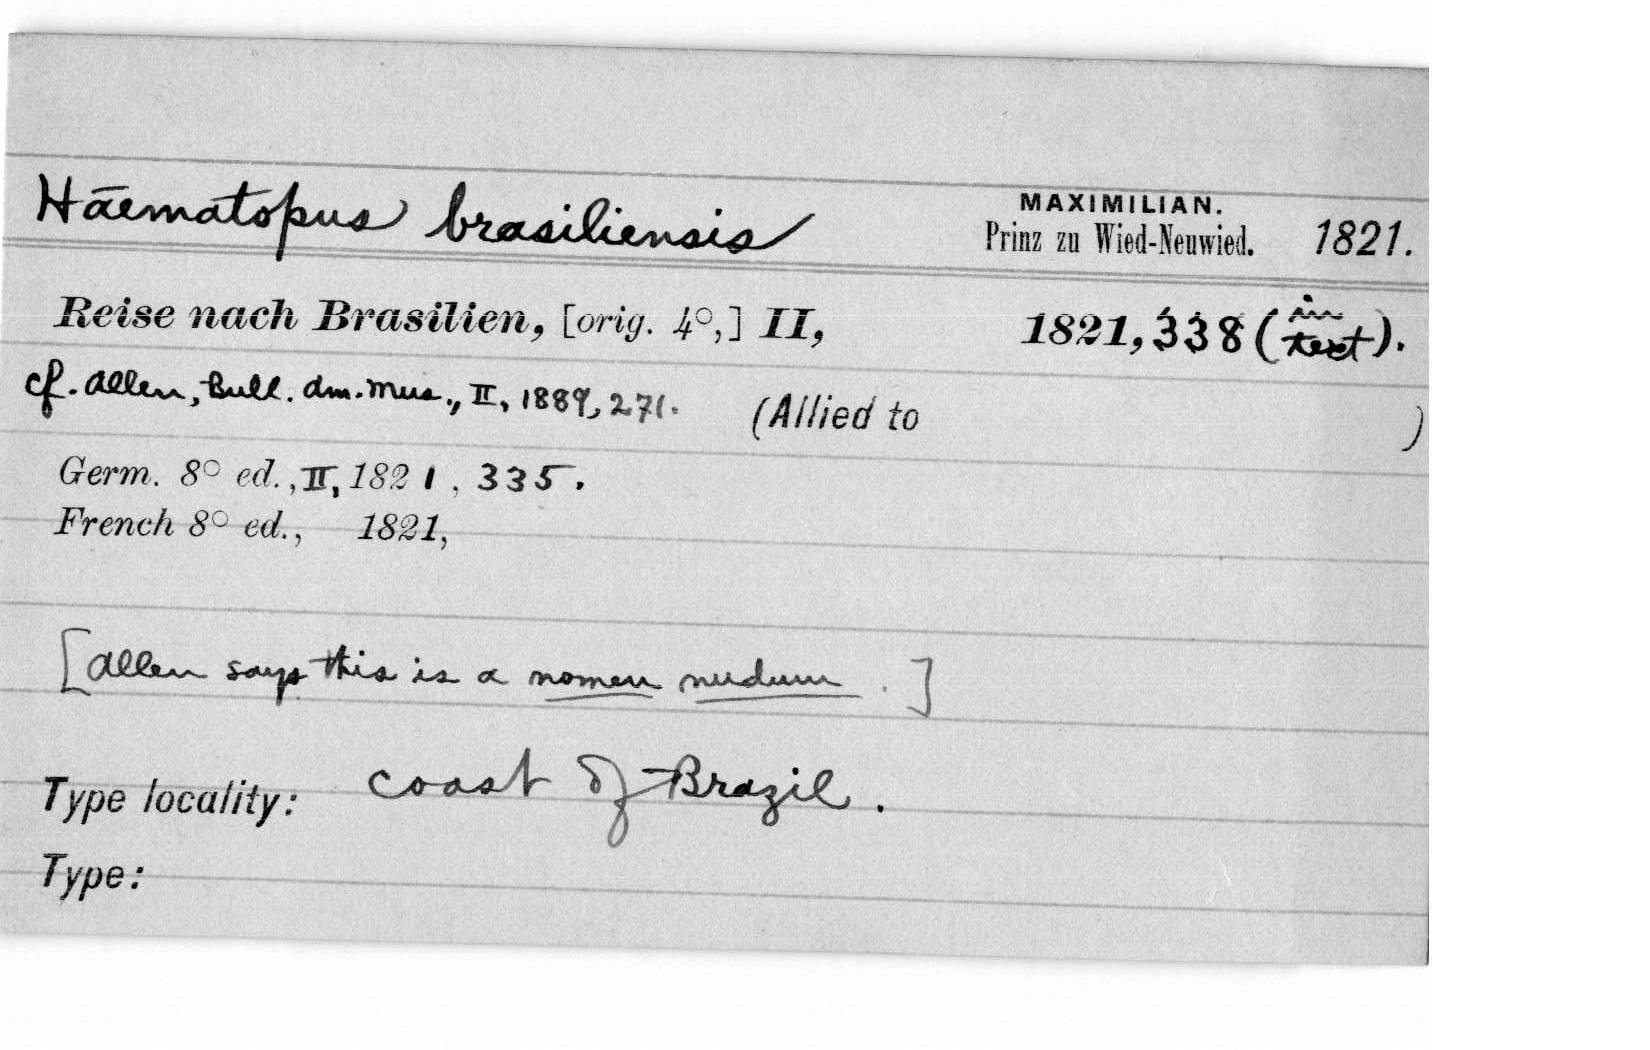 Haematopus brasiliensis MAXIMILIAN. Prinz zu Wied-Neuwied. 1821.
Reise nach Brasilien, [orig. 4°,] II, 1821, 338 (in text).
cf. Allen, Bull. Am. Mus., II, 1889, 271. (Allied to )
Germ. 8° ed., II, 1821, 335.
French 8° ed., 1821,
[Allen says this is a nomen nudum.]
Type locality: coast of Brazil.
Type: